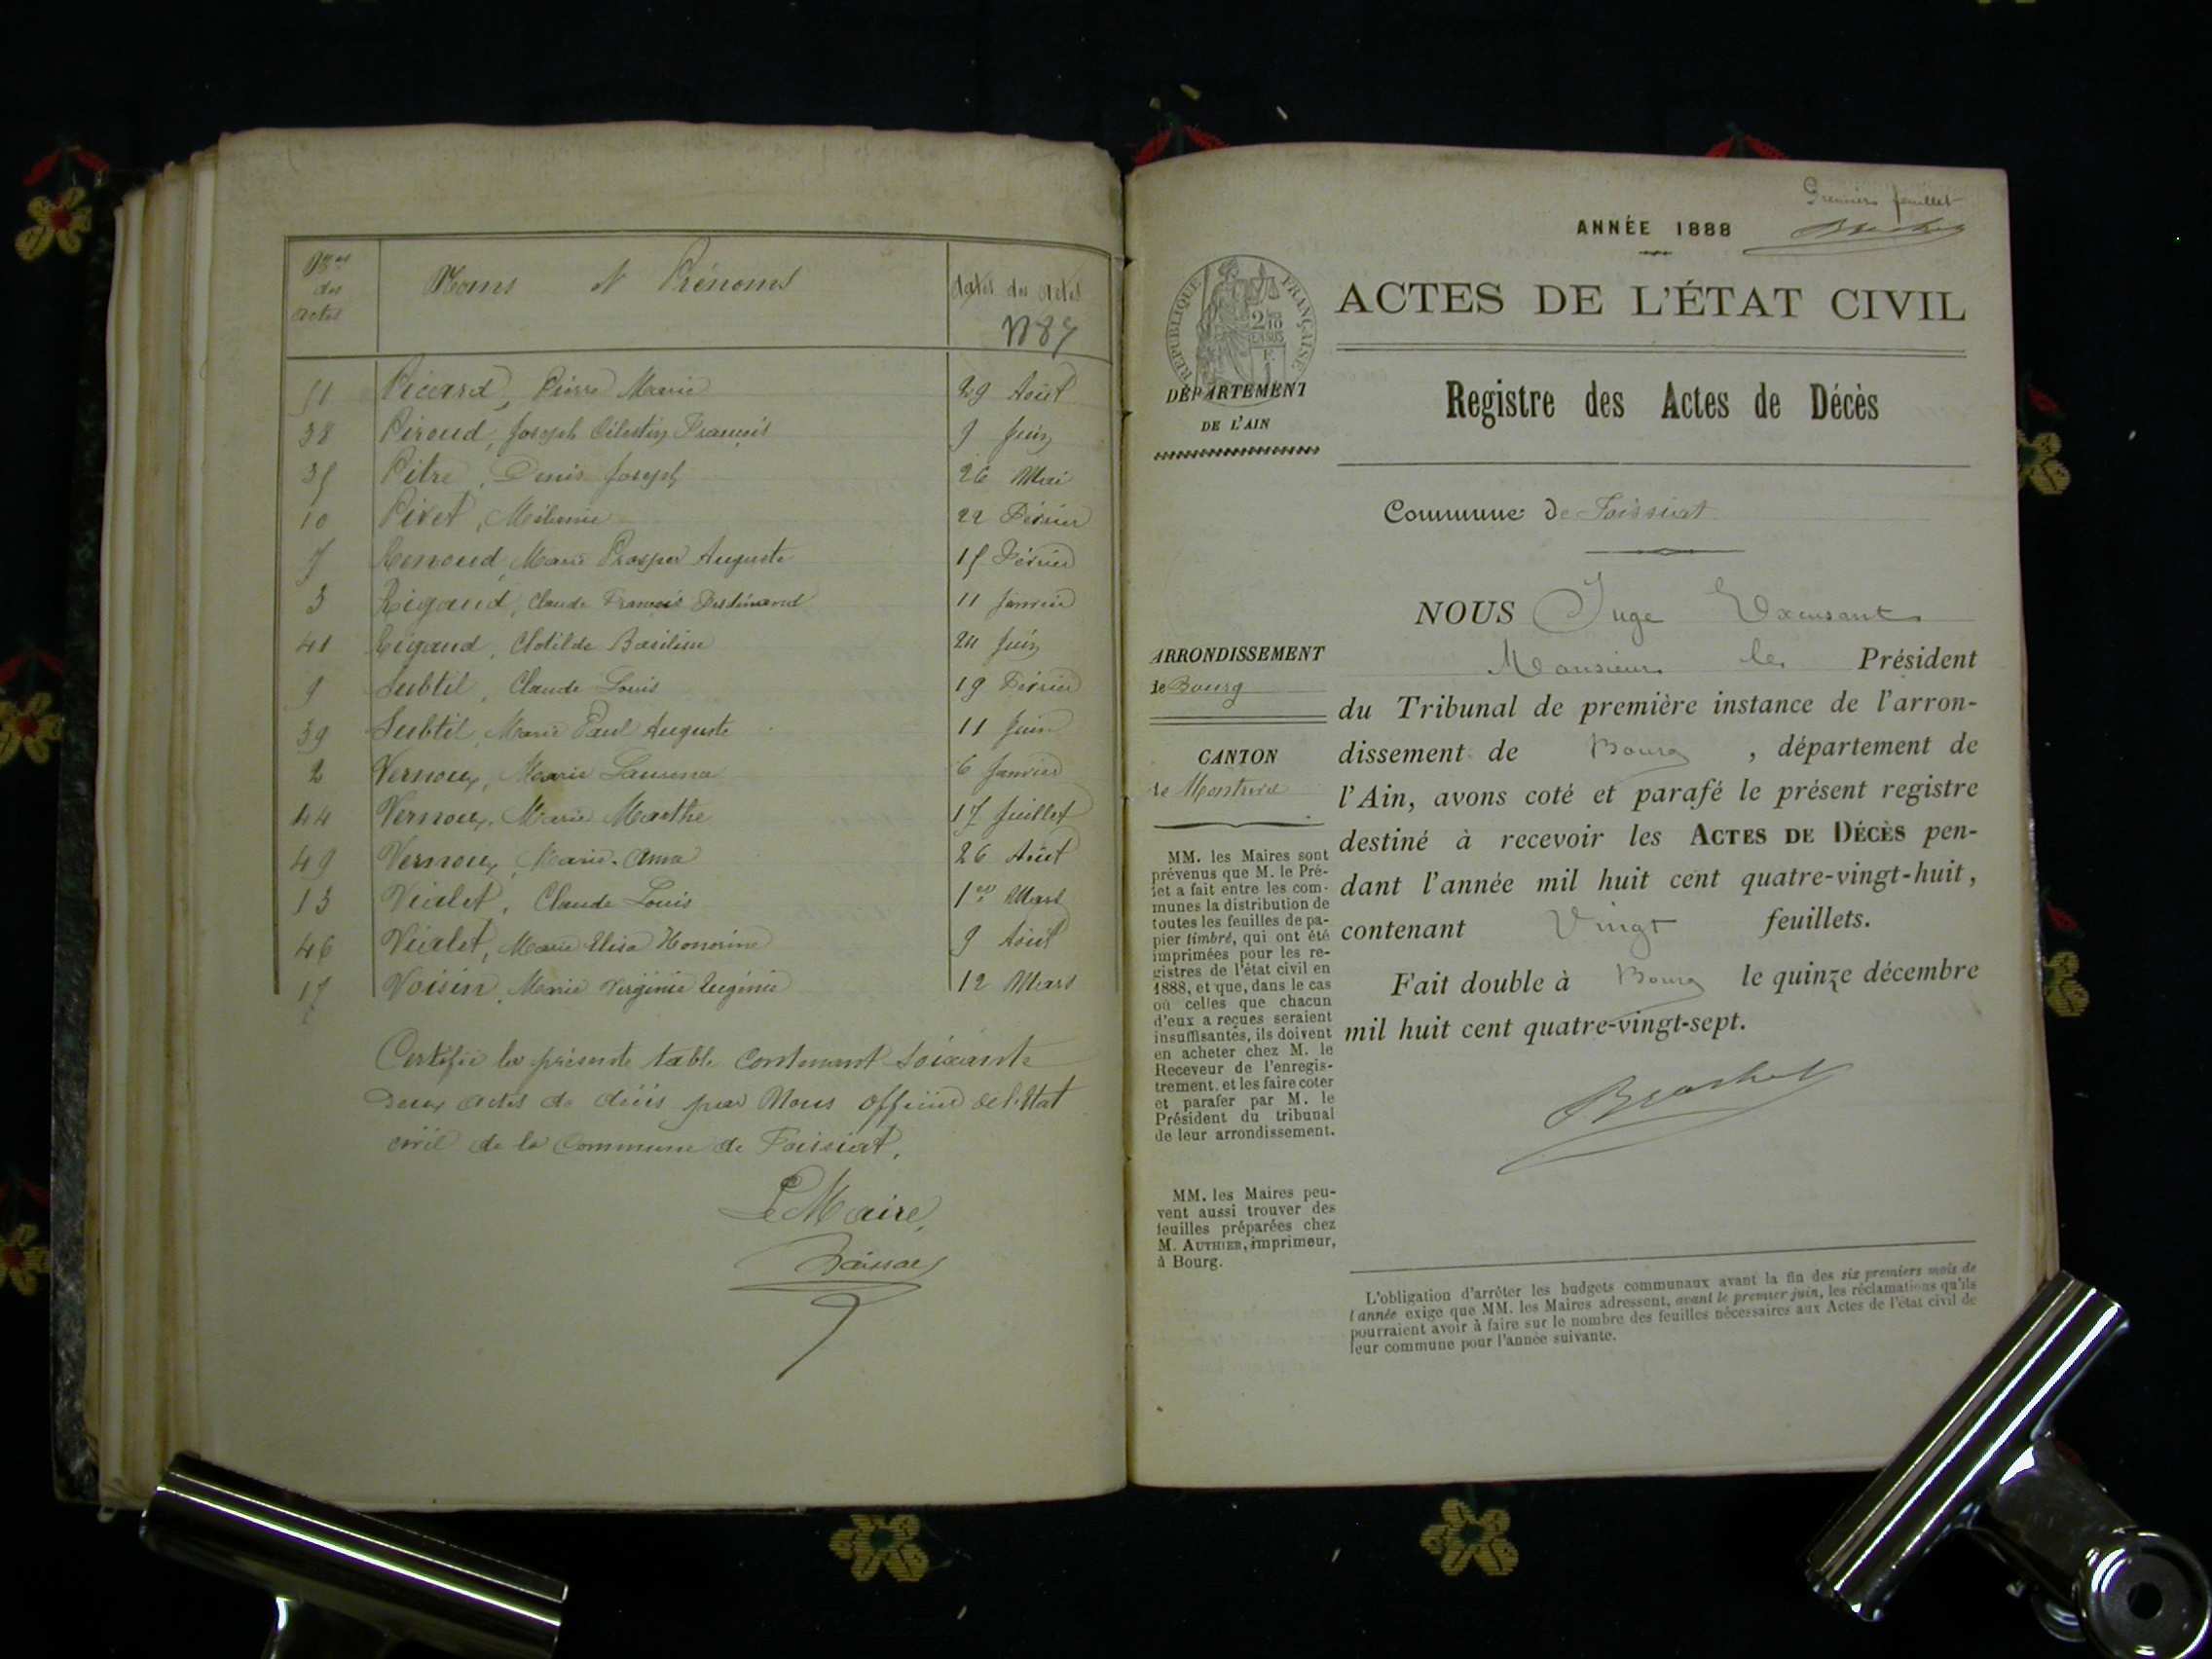 Nos
des
actes
Noms et Prénoms
dates des actes
1887
51 Picard, Pierre Marie 29 Août
38 Piroud, Joseph Célestin François 9 Juin
35 Pitre, Denis Joseph 26 Mai
10 Pivet, Mélanie 22 Février
7 Renoud, Marie Prosper Auguste 15 Février
3 Rigaud, Claude François Ferdinand 11 Janvier
41 Rigaud, Clotilde Basiline 24 Juin
9 Subtil, Claude Louis 19 Février
39 Subtil, Marie Paul Auguste 11 Juin
2 Vernoux, Marie 6 Janvier
44 Vernoux, Marie Marthe 17 Juillet
49 Vernoux, Marie-Ama 26 Août
13 Vialet, Claude Louis 1er Mars
46 Vialet, Marie Elisa Honorine 9 Août
17 Voisin, Marie Virginie Eugénie 12 Mars
Certifié la présente table contenant soixante
Deux actes de décès par Nous officier de l'Etat
civil de la Commune de Foissiat.
Le Maire,
Premier feuillet
ANNÉE 1888
RÉPUBLIQUE FRANÇAISE
ACTES DE L'ÉTAT CIVIL
DÉPARTEMENT
DE L'AIN
Registre des Actes de Décès
Commune de Foissiat
NOUS Juge Excusant
Monsieur le Président
du Tribunal de première instance de l'arron-
dissement de Bourg, département de
l'Ain, avons coté et parafé le présent registre
destiné à recevoir les ACTES DE DÉCÈS pen-
dant l'année mil huit cent quatre-vingt-huit,
contenant Vingt feuillets.
Fait double à Bourg le quinze décembre
mil huit cent quatre-vingt-sept.
ARRONDISSEMENT
de Bourg
CANTON
de Montrevel
MM. les Maires sont
prévenus que M. le Pré-
fet a fait entre les com-
munes la distribution de
toutes les feuilles de pa-
pier timbré, qui ont été
imprimées pour les re-
gistres de l'état civil en
1888, et que, dans le cas
où celles que chacun
d'eux a reçues seraient
insuffisantes, ils doivent
en acheter chez M. le
Receveur de l'enregis-
trement, et les faire coter
et parafer par M. le
Président du tribunal
de leur arrondissement.
MM. les Maires peu-
vent aussi trouver des
feuilles préparées chez
M. AUTHIER, imprimeur,
à Bourg.
L'obligation d'arrêter les budgets communaux avant la fin des six premiers mois de
l'année exige que MM. les Maires adressent, avant le premier juin, les réclamations qu'ils
pourraient avoir à faire sur le nombre des feuilles nécessaires aux Actes de l'état civil de
leur commune pour l'année suivante.